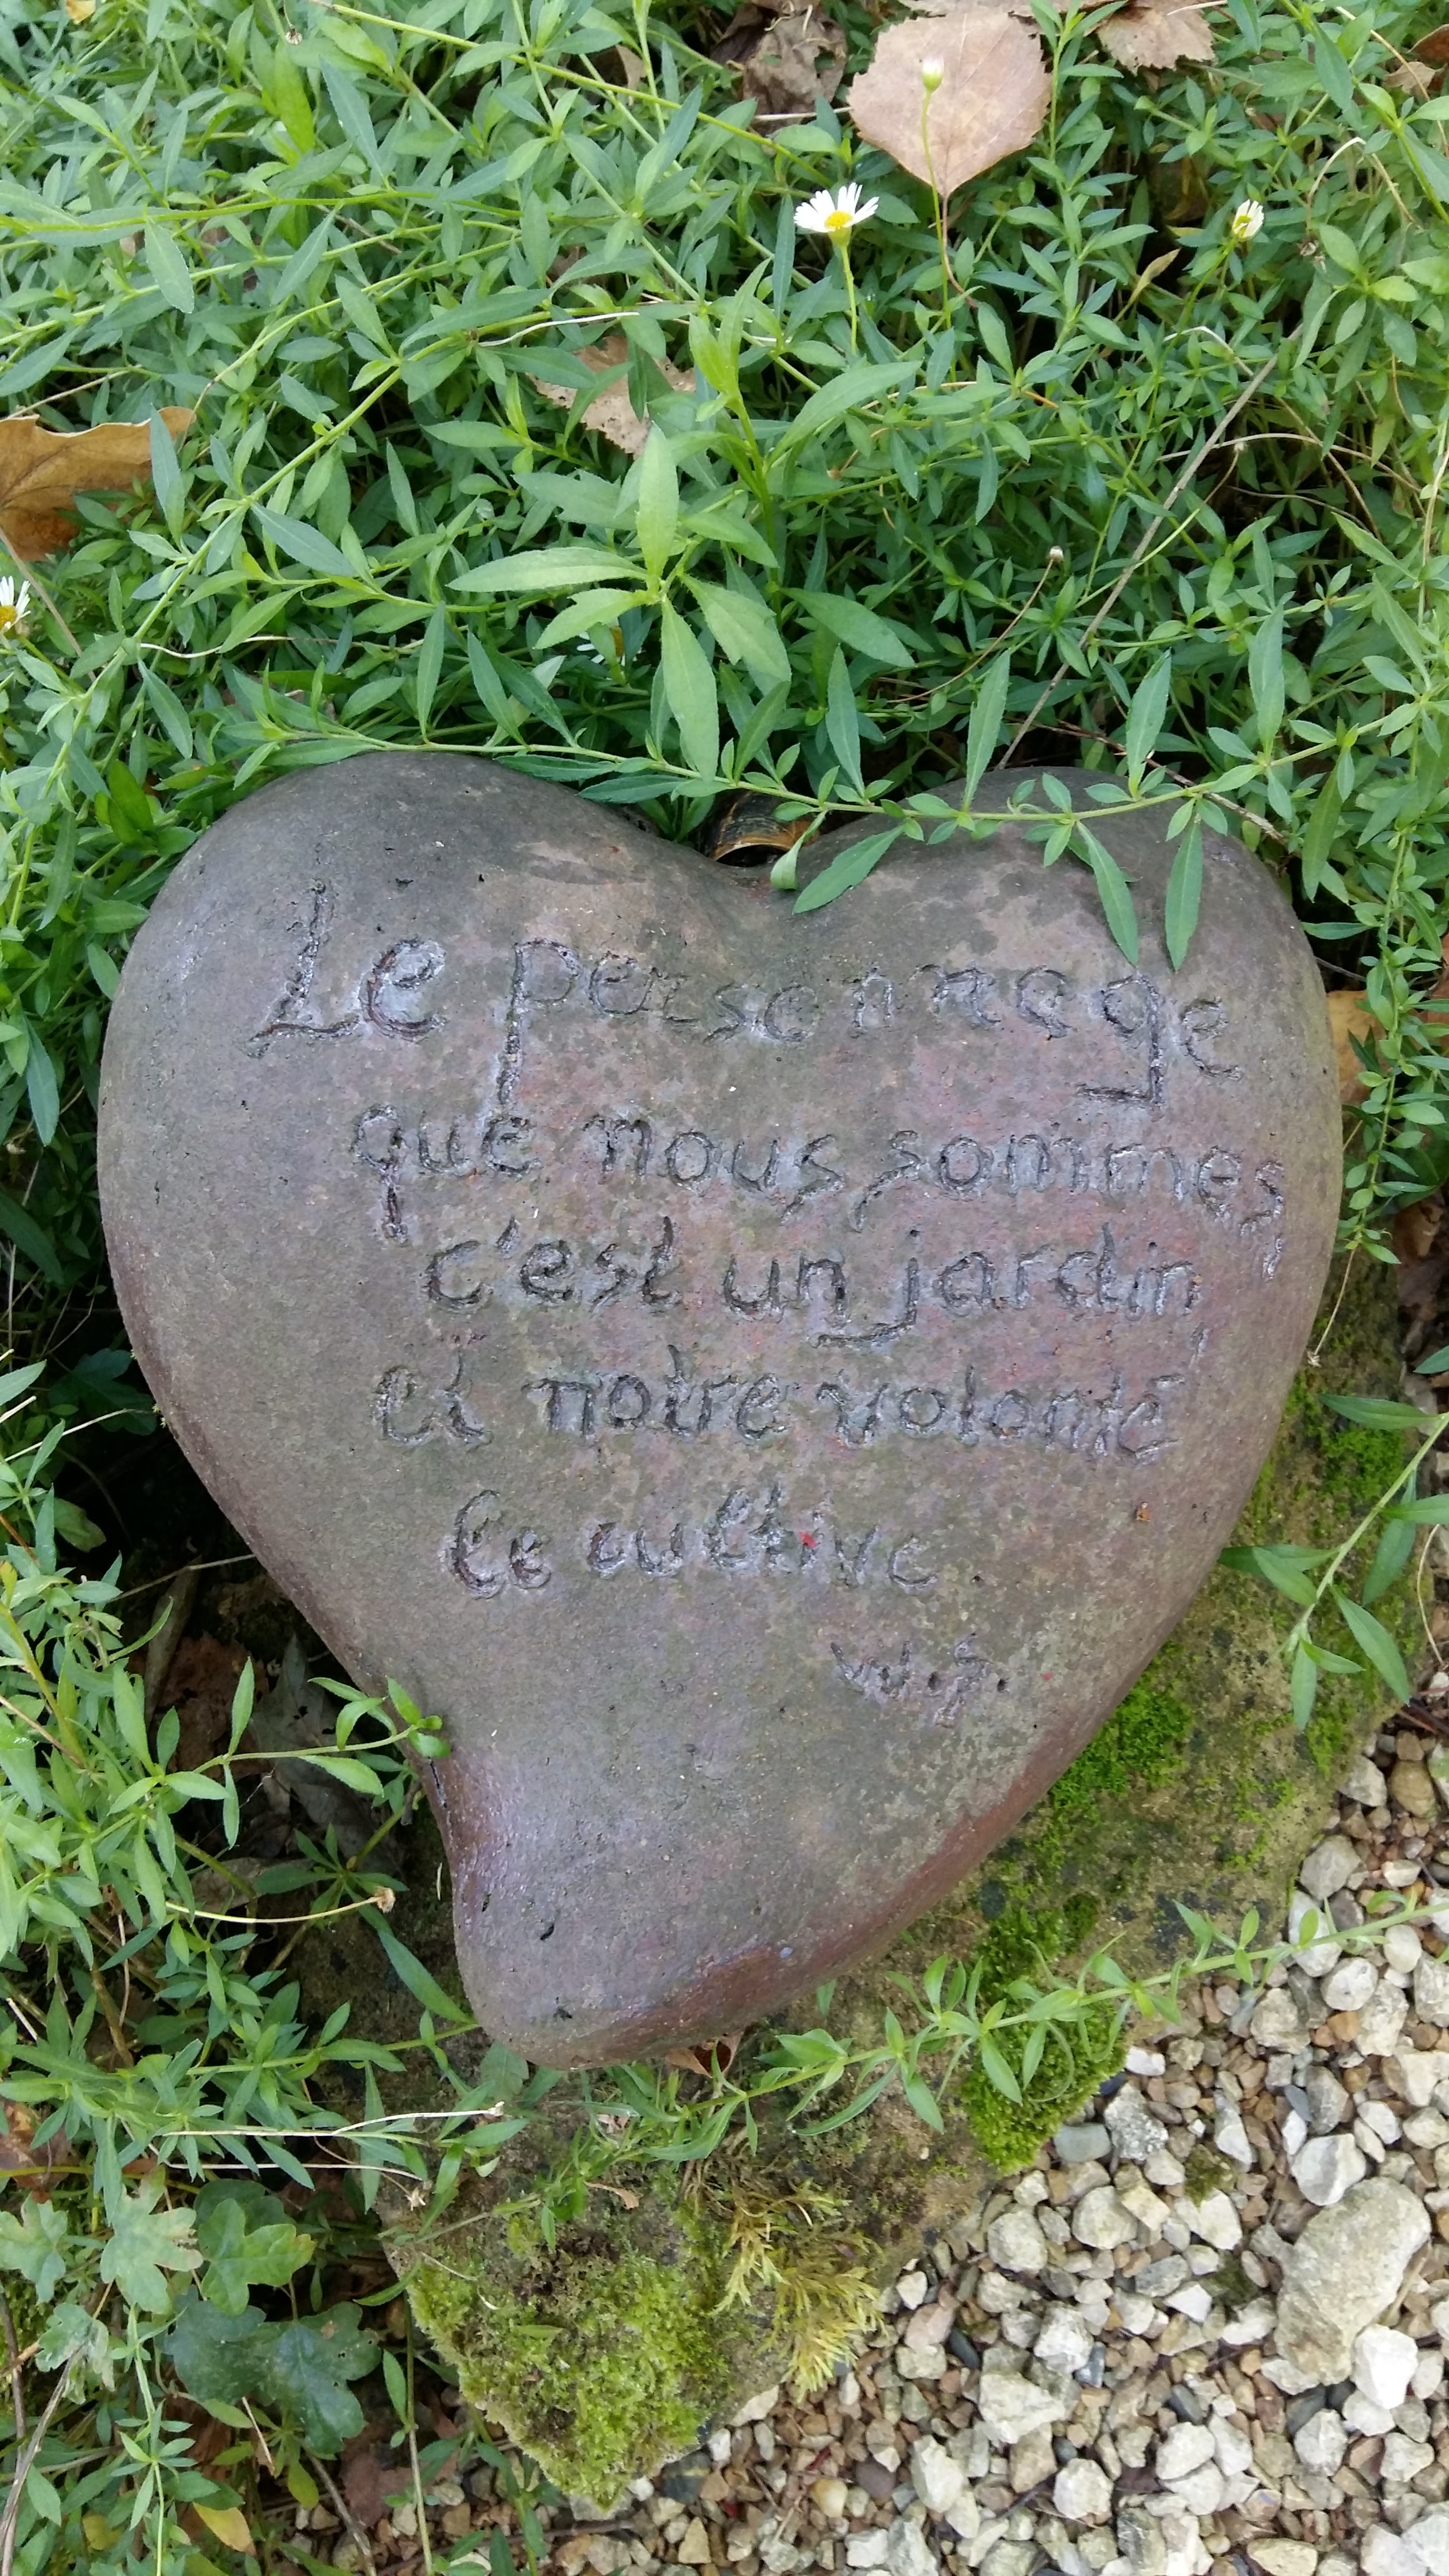 Le personnage
que nous sommes
c'est un jardin,
et notre volonté
le cultive
W.S.